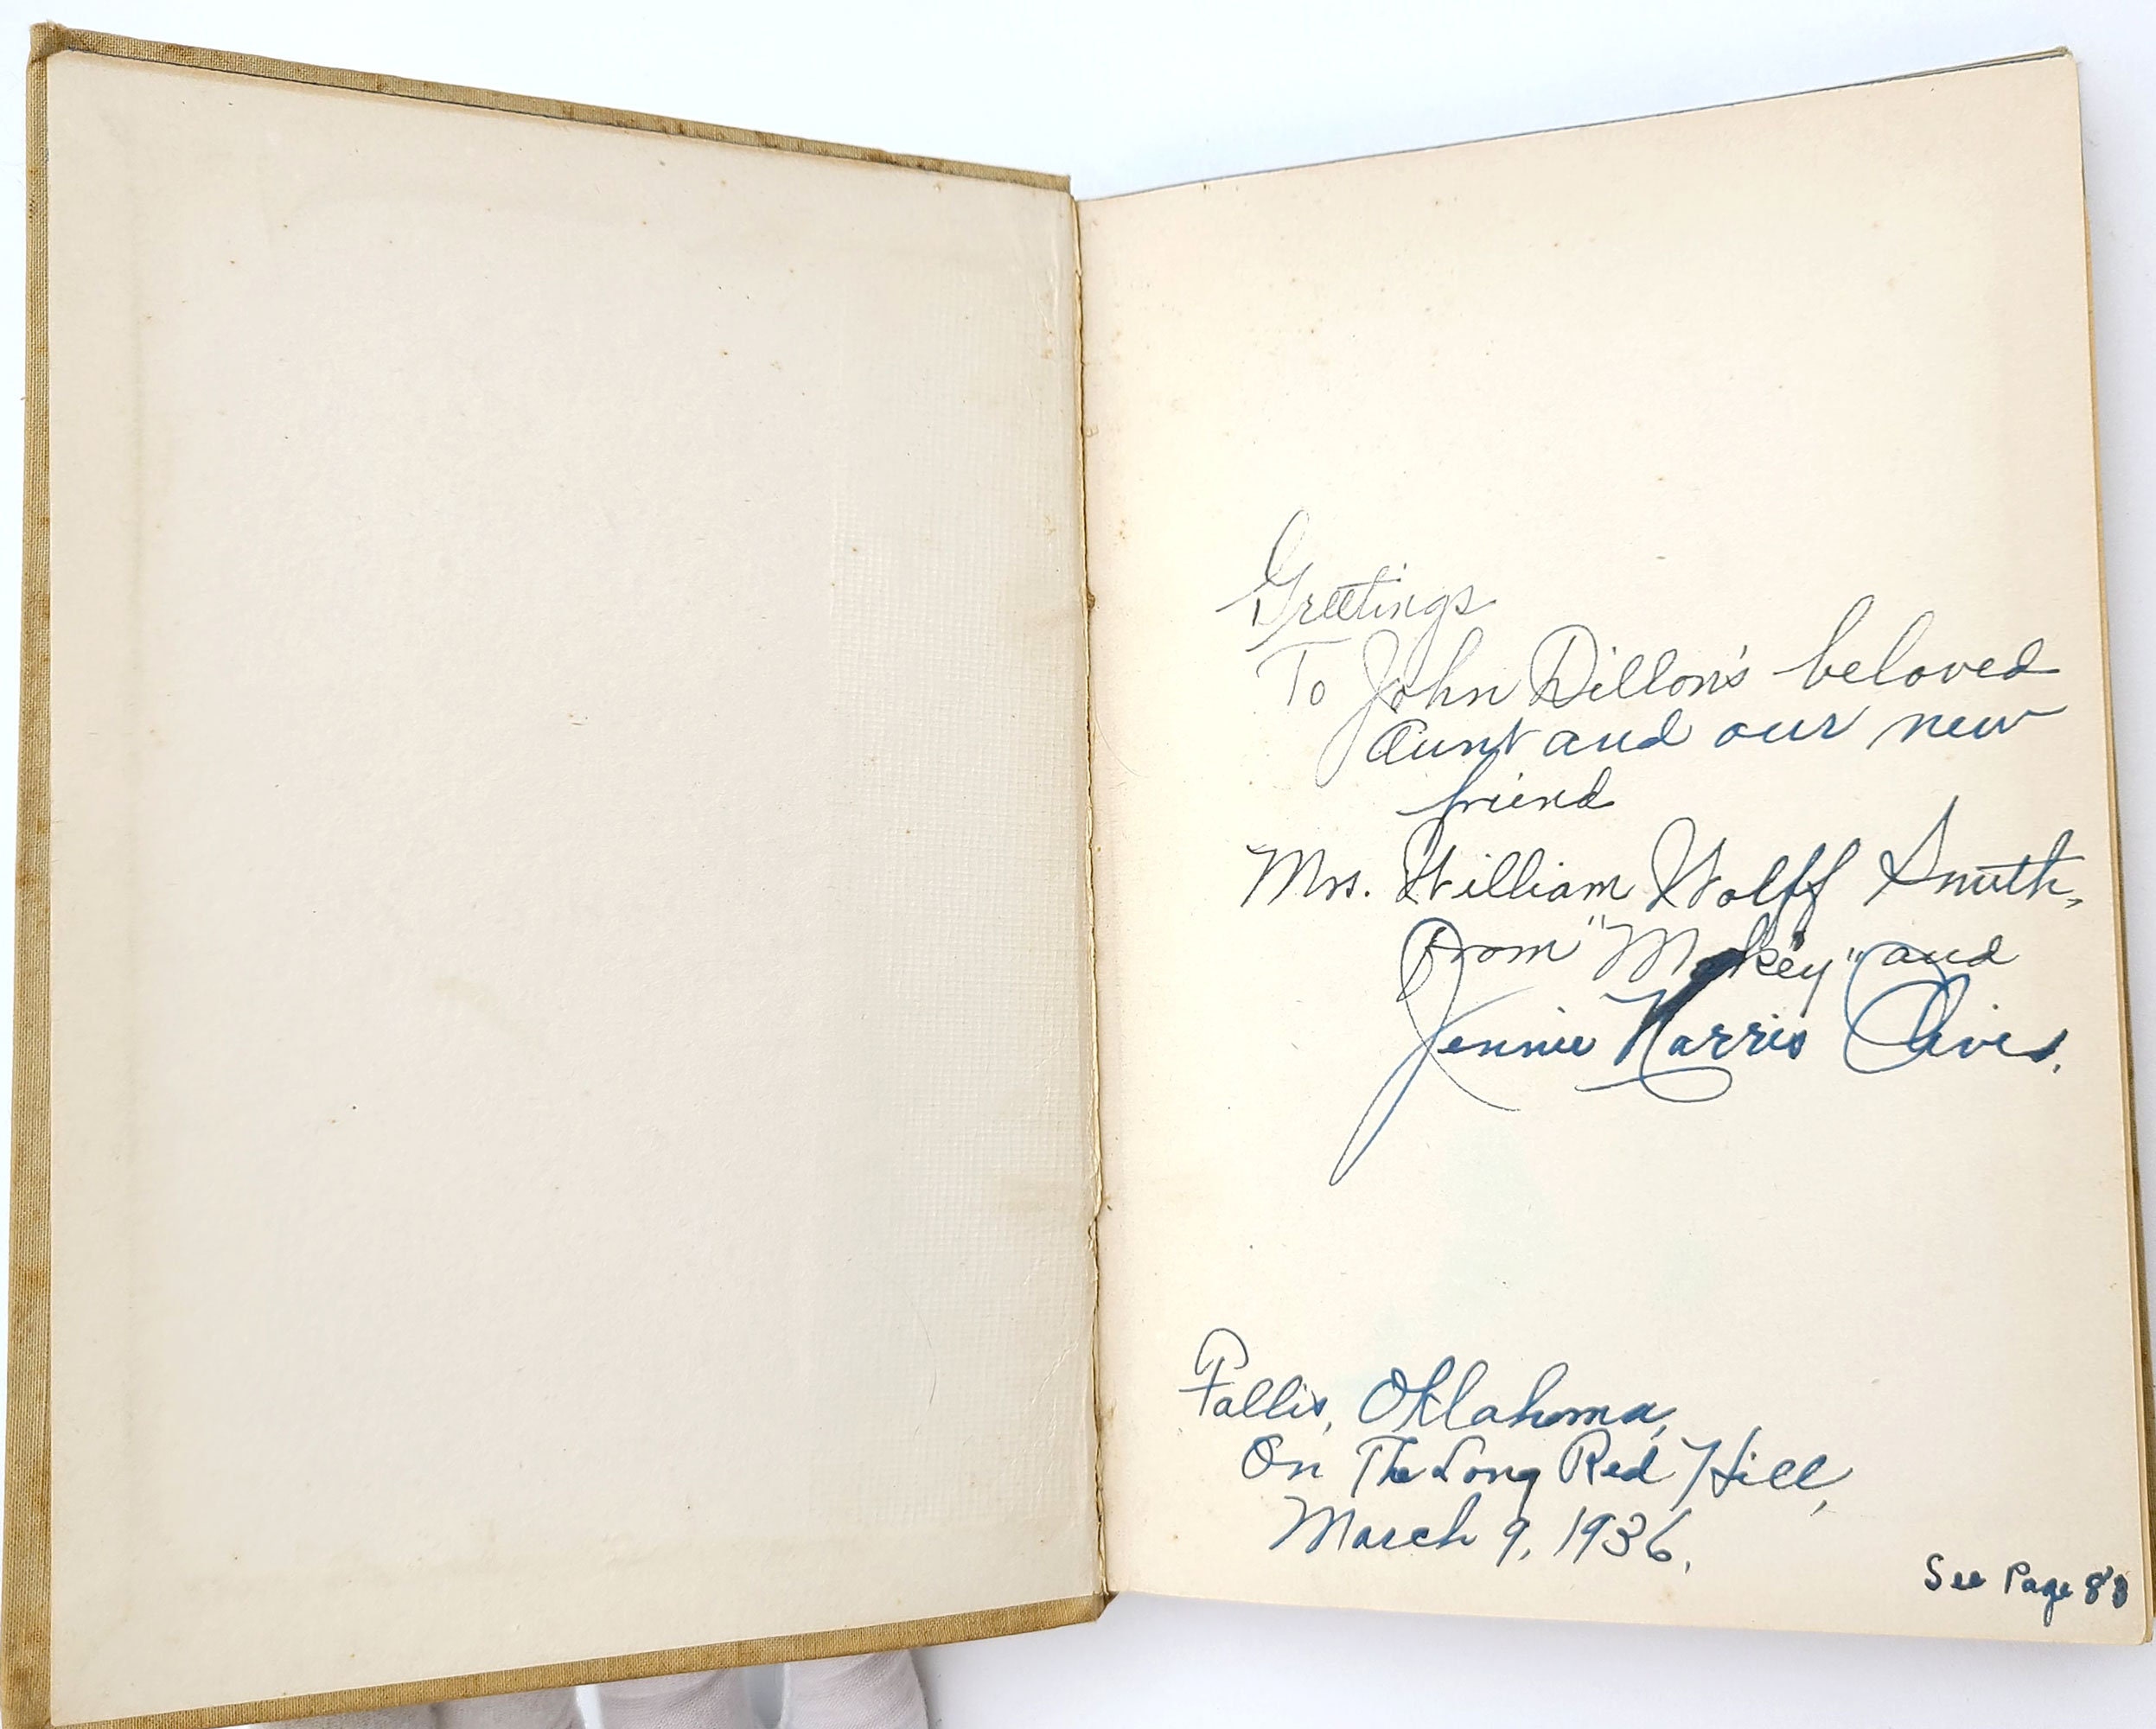 Greetings
To John Dillon's beloved
Aunt and our new
friend
Mrs. William Wolff Smith,
From "Mokey" and
Jennie Harris Oliver.
Fallis, Oklahoma,
On The Long Red Hill,
March 9, 1936.
See Page